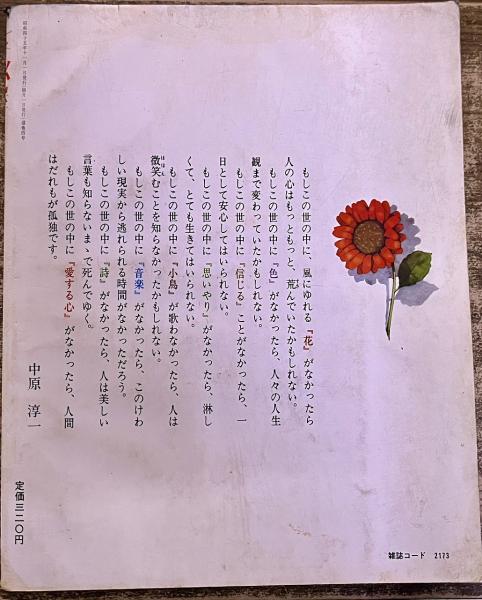 もしこの世の中に、風にゆれる『花』がなかったら
人の心はもっともっと、荒んでいたかもしれない。
もしこの世の中に『色』がなかったら、人々の人生
観まで変わっていたかもしれない。
もしこの世の中に『信じる』ことがなかったら、一
日として安心してはいられない。
もしこの世の中に『思いやり』がなかったら、淋し
くて、とても生きてはいられない。
もしこの世の中に『小鳥』が歌わなかったら、人は
微笑むことを知らなかったかもしれない。
もしこの世の中に『音楽』がなかったら、このけわ
しい現実から逃れられる時間がなかっただろう。
もしこの世の中に『詩』がなかったら、人は美しい
言葉も知らないまゝで死んでゆく。
もしこの世の中に『愛する心』がなかったら、人間
はだれもが孤独です。
中原 淳一
定価三二〇円
雑誌コード 2173